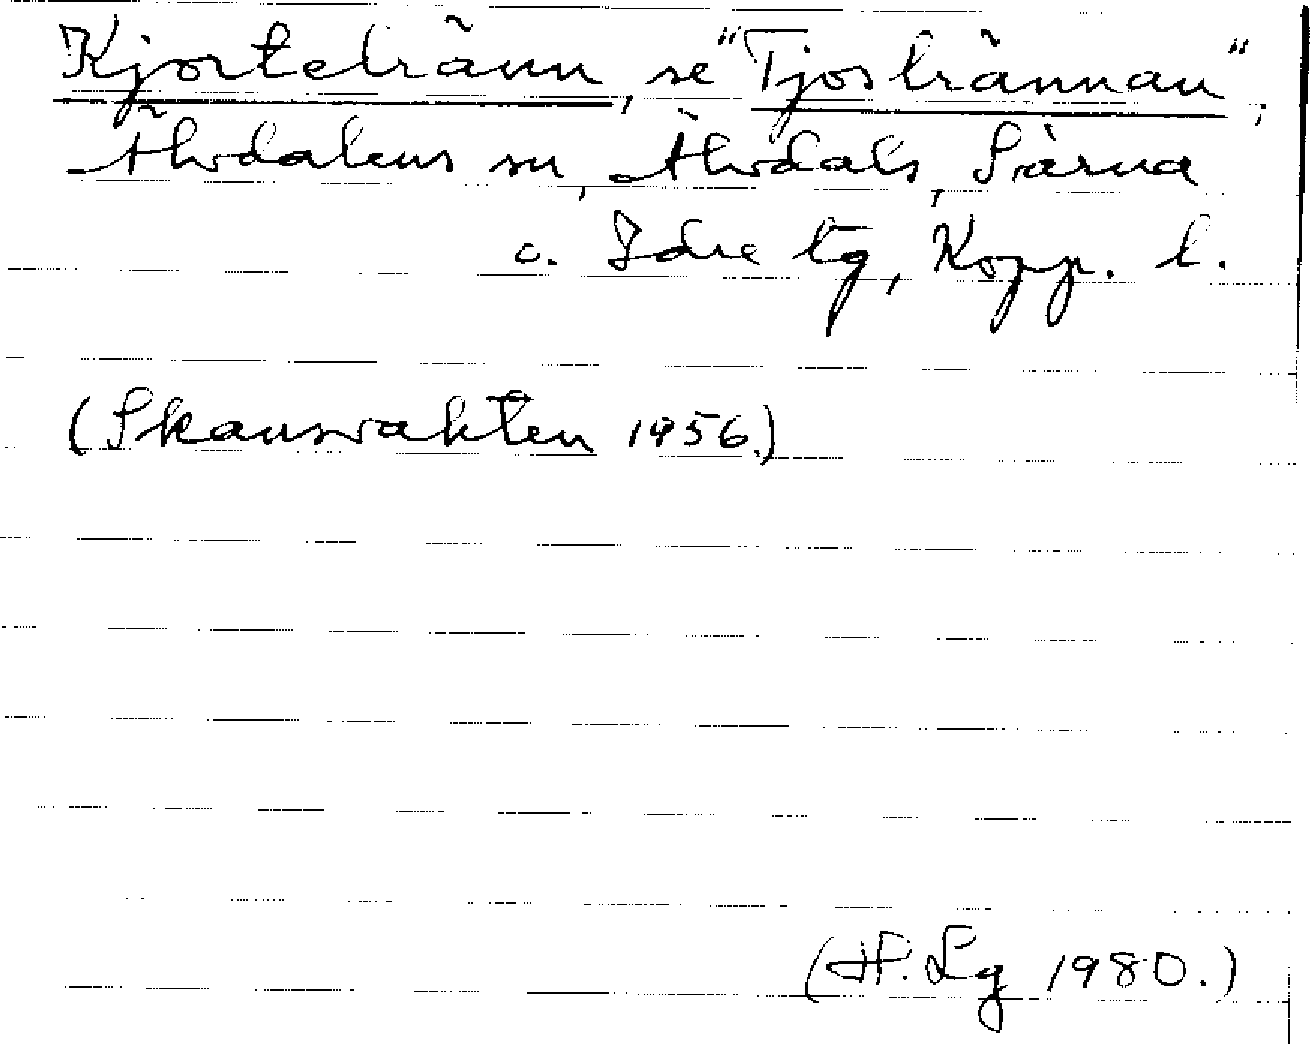 Kjorteltränn, se "Tjosltrännan",
Älvdalens sn, Älvdals, Särna
o. Idre tg, Kopp. l.
(Skansvakten 1956.)
(H. Lg 1980.)